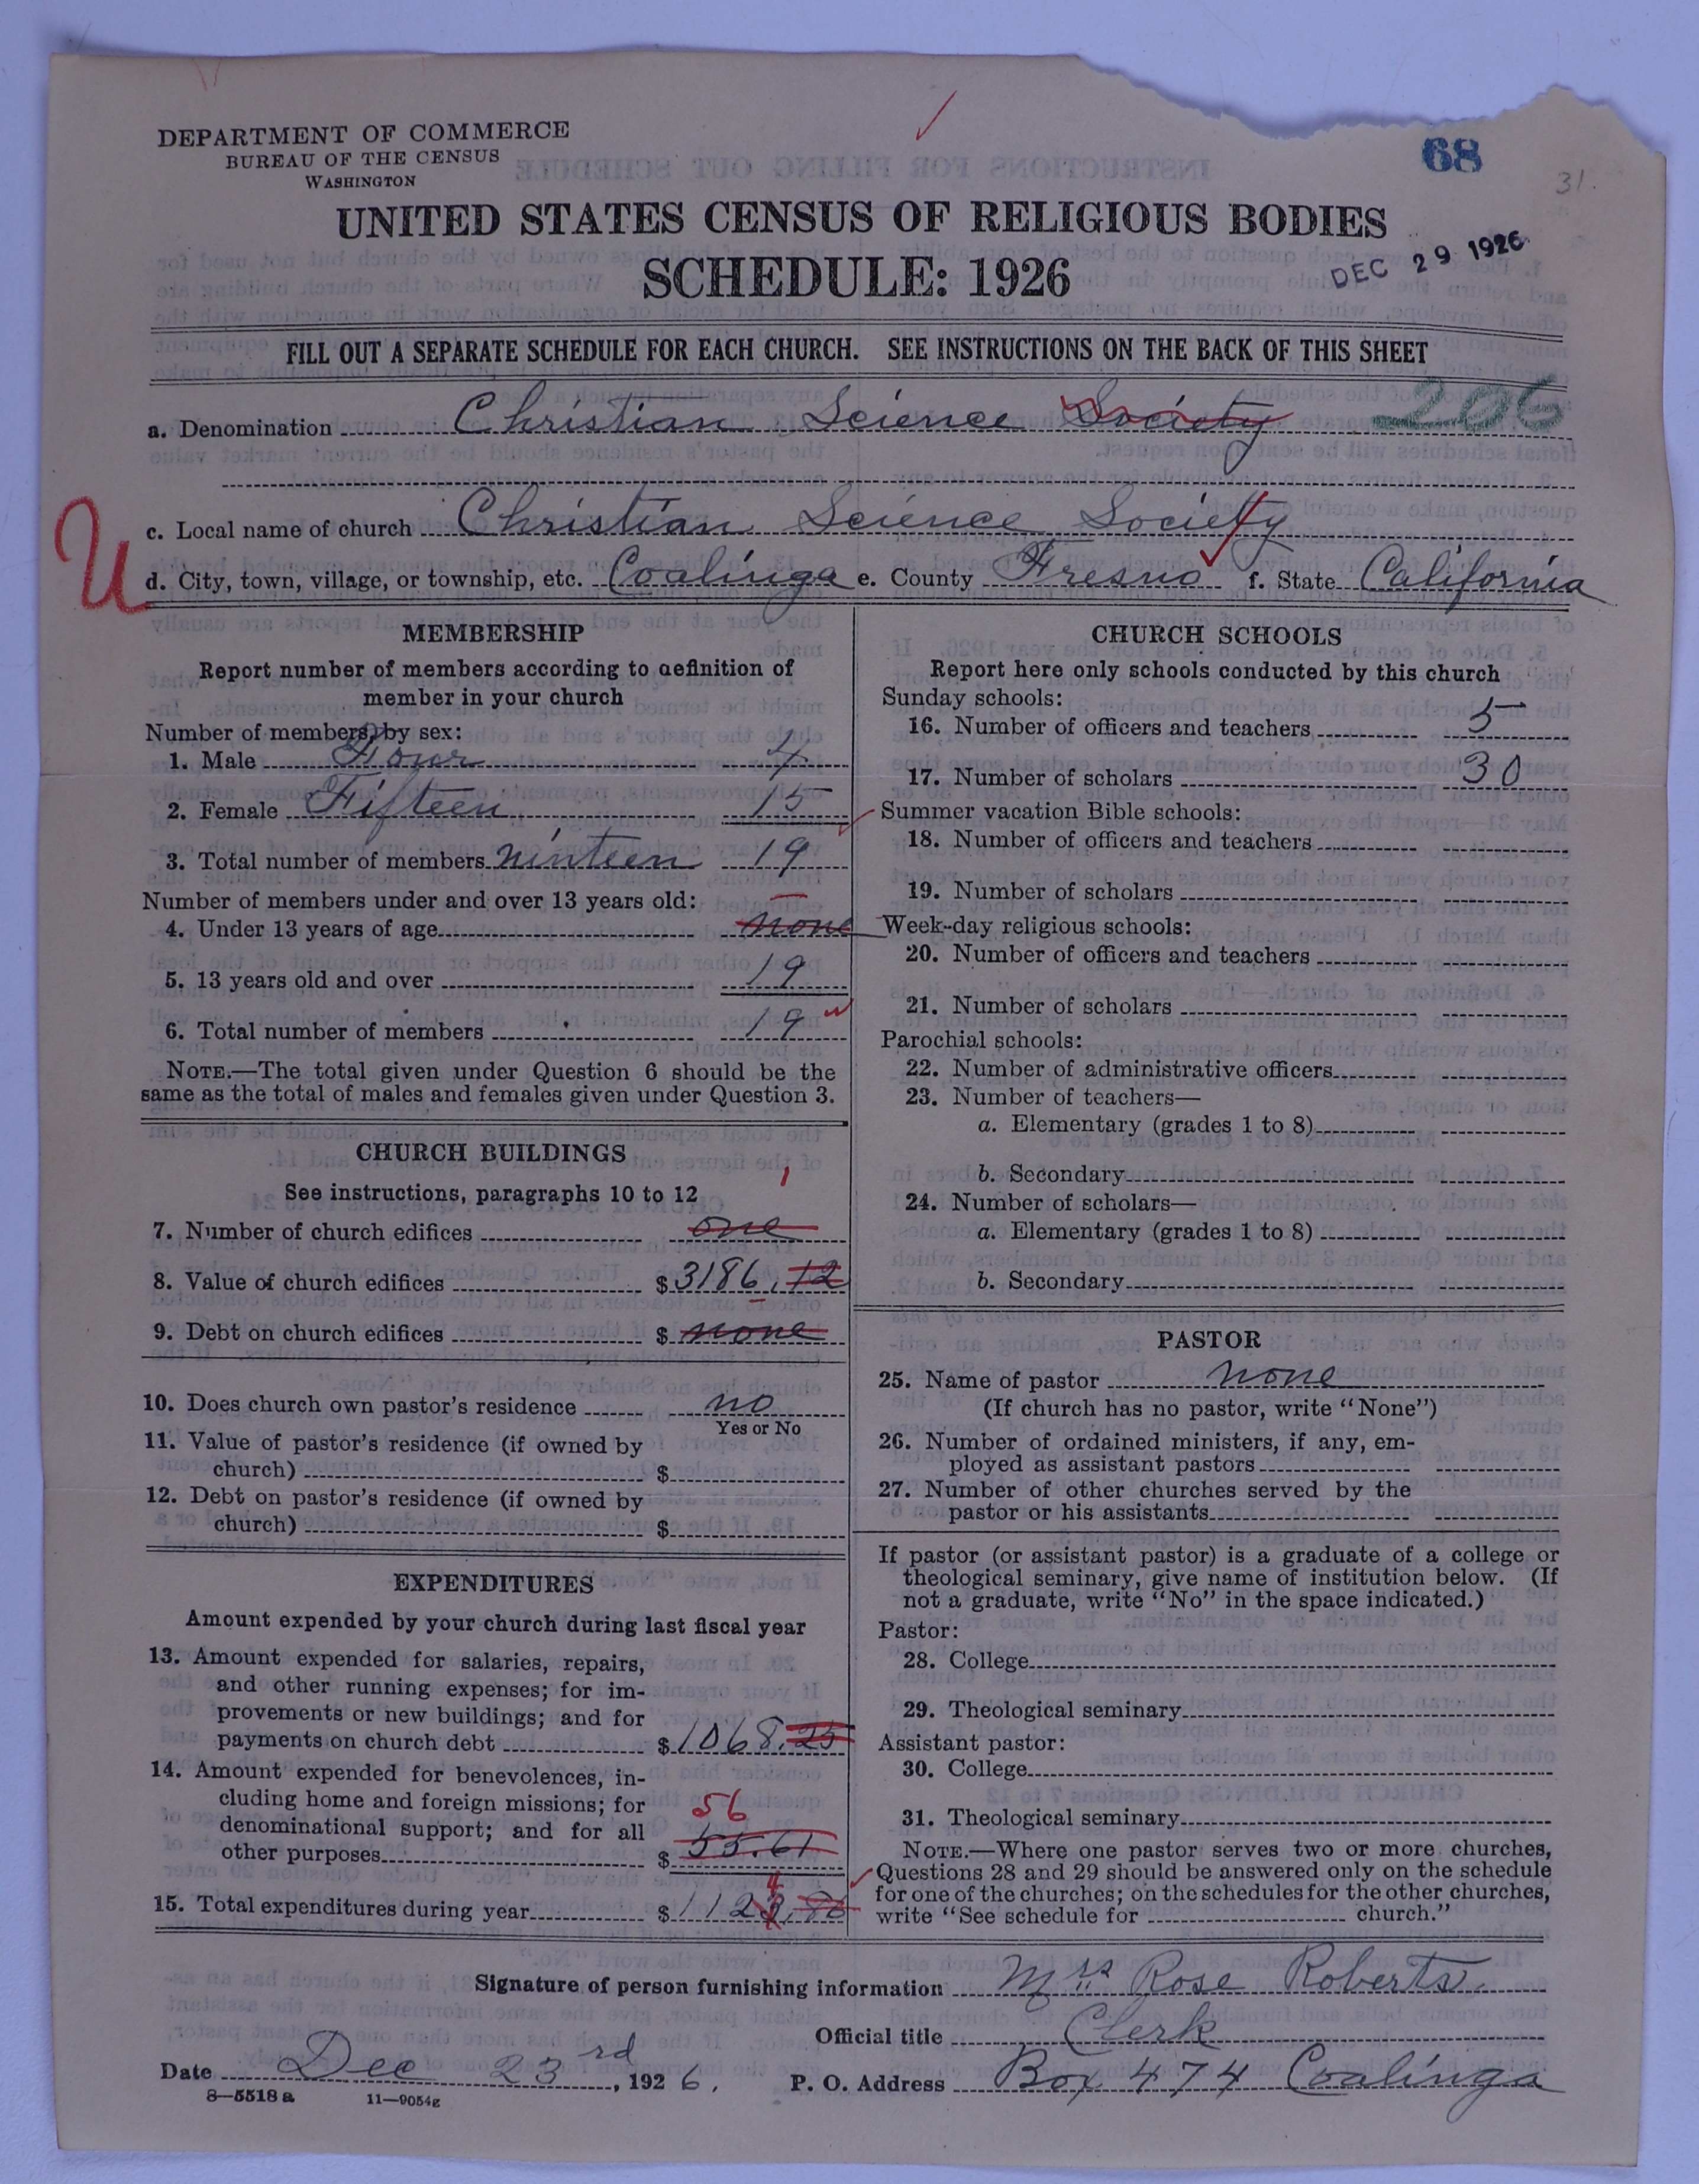 DEPARTMENT OF COMMERCE
BUREAU OF THE CENSUS
WASHINGTON
68
31.
UNITED STATES CENSUS OF RELIGIOUS BODIES
SCHEDULE: 1926
DEC 29 1926
FILL OUT A SEPARATE SCHEDULE FOR EACH CHURCH. SEE INSTRUCTIONS ON THE BACK OF THIS SHEET
a. Denomination Christian Science Society 206
c. Local name of church Christian Science Society
U
d. City, town, village, or township, etc. Coalinga e. County Fresno f. State California
MEMBERSHIP
Report number of members according to definition of
member in your church
Number of members, by sex:
1. Male Four 4
2. Female Fifteen 15
3. Total number of members ninteen 19
Number of members under and over 13 years old:
4. Under 13 years of age none
5. 13 years old and over 19
6. Total number of members 19
NOTE.—The total given under Question 6 should be the
same as the total of males and females given under Question 3.
CHURCH BUILDINGS
See instructions, paragraphs 10 to 12
1
7. Number of church edifices one
8. Value of church edifices $3186.12
9. Debt on church edifices $ none
10. Does church own pastor's residence no
Yes or No
11. Value of pastor's residence (if owned by
church) $
12. Debt on pastor's residence (if owned by
church) $
EXPENDITURES
Amount expended by your church during last fiscal year
13. Amount expended for salaries, repairs,
and other running expenses; for im-
provements or new buildings; and for
payments on church debt $1068.25
14. Amount expended for benevolences, in-
cluding home and foreign missions; for
56
denominational support; and for all
other purposes $ 55.61
4
15. Total expenditures during year $1123.86
CHURCH SCHOOLS
Report here only schools conducted by this church
Sunday schools:
16. Number of officers and teachers 5
17. Number of scholars 30
Summer vacation Bible schools:
18. Number of officers and teachers
19. Number of scholars
Week-day religious schools:
20. Number of officers and teachers
21. Number of scholars
Parochial schools:
22. Number of administrative officers
23. Number of teachers—
a. Elementary (grades 1 to 8)
b. Secondary
24. Number of scholars—
a. Elementary (grades 1 to 8)
b. Secondary
PASTOR
25. Name of pastor none
(If church has no pastor, write "None")
26. Number of ordained ministers, if any, em-
ployed as assistant pastors
27. Number of other churches served by the
pastor or his assistants
If pastor (or assistant pastor) is a graduate of a college or
theological seminary, give name of institution below. (If
not a graduate, write "No" in the space indicated.)
Pastor:
28. College
29. Theological seminary
Assistant pastor:
30. College
31. Theological seminary
NOTE.—Where one pastor serves two or more churches,
Questions 28 and 29 should be answered only on the schedule
for one of the churches; on the schedules for the other churches,
write "See schedule for church."
Signature of person furnishing information Mrs Rose Roberts.
Official title Clerk
Date Dec 23rd, 1926. P. O. Address Box 474 Coalinga
8—5518a 11—9054g